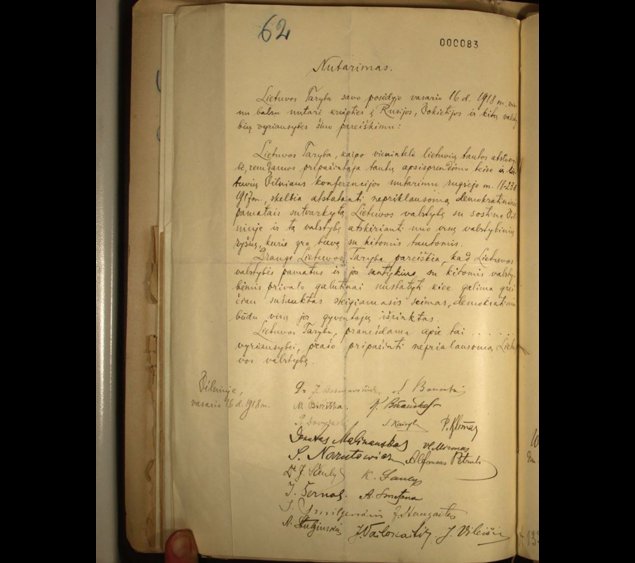 62
000083
Nutarimas.
Lietuvos Taryba savo posėdyje vasario 16 d. 1918 m. vie-
nu balsu nutarė kreiptis į Rusijos, Vokietijos ir kitų valsty-
bių vyriausybes šiuo pareiškimu:
Lietuvos Taryba, kaipo vienintelė lietuvių tautos atstovy-
bė, remdamos pripažintąja tautų apsisprendimo teise ir lie-
tuvių Vilniaus konferencijos nutarimu rugsėjo m. 18-23 d.
1917 m., skelbia atstatanti nepriklausomą demokratiniais
pamatais sutvarkytą Lietuvos valstybę su sostine Vil-
niuje ir tą valstybę atskirianti nuo visų valstybinių
ryšių, kurie yra buvę su kitomis tautomis.
Drauge Lietuvos Taryba pareiškia, kad Lietuvos
valstybės pamatus ir jos santykius su kitomis valsty-
bėmis privalo galutinai nustatyti kiek galima grei-
čiau sušauktas steigiamasis seimas, demokratiniu
būdu visų jos gyventojų išrinktas.
Lietuvos Taryba, pranešdama apie tai ......
vyriausybei, prašo pripažinti nepriklausomą Lietu-
vos valstybę.
Vilniuje,
vasario 16 d. 1918 m.
J. Basanavičius S. Banaitis
M. Biržiška K. Bizauskas
S. Kairys P. Klimas
Donatas Malinauskas Vl. Mironas
S. Narutowicz Alfonsas Petrulis
Dr J. Šaulys K. Šaulys
J. Šernas A. Smetona
J. Smilgevičius J. Staugaitis
A. Stulginskis J. Vailokaitis J. Vileišis